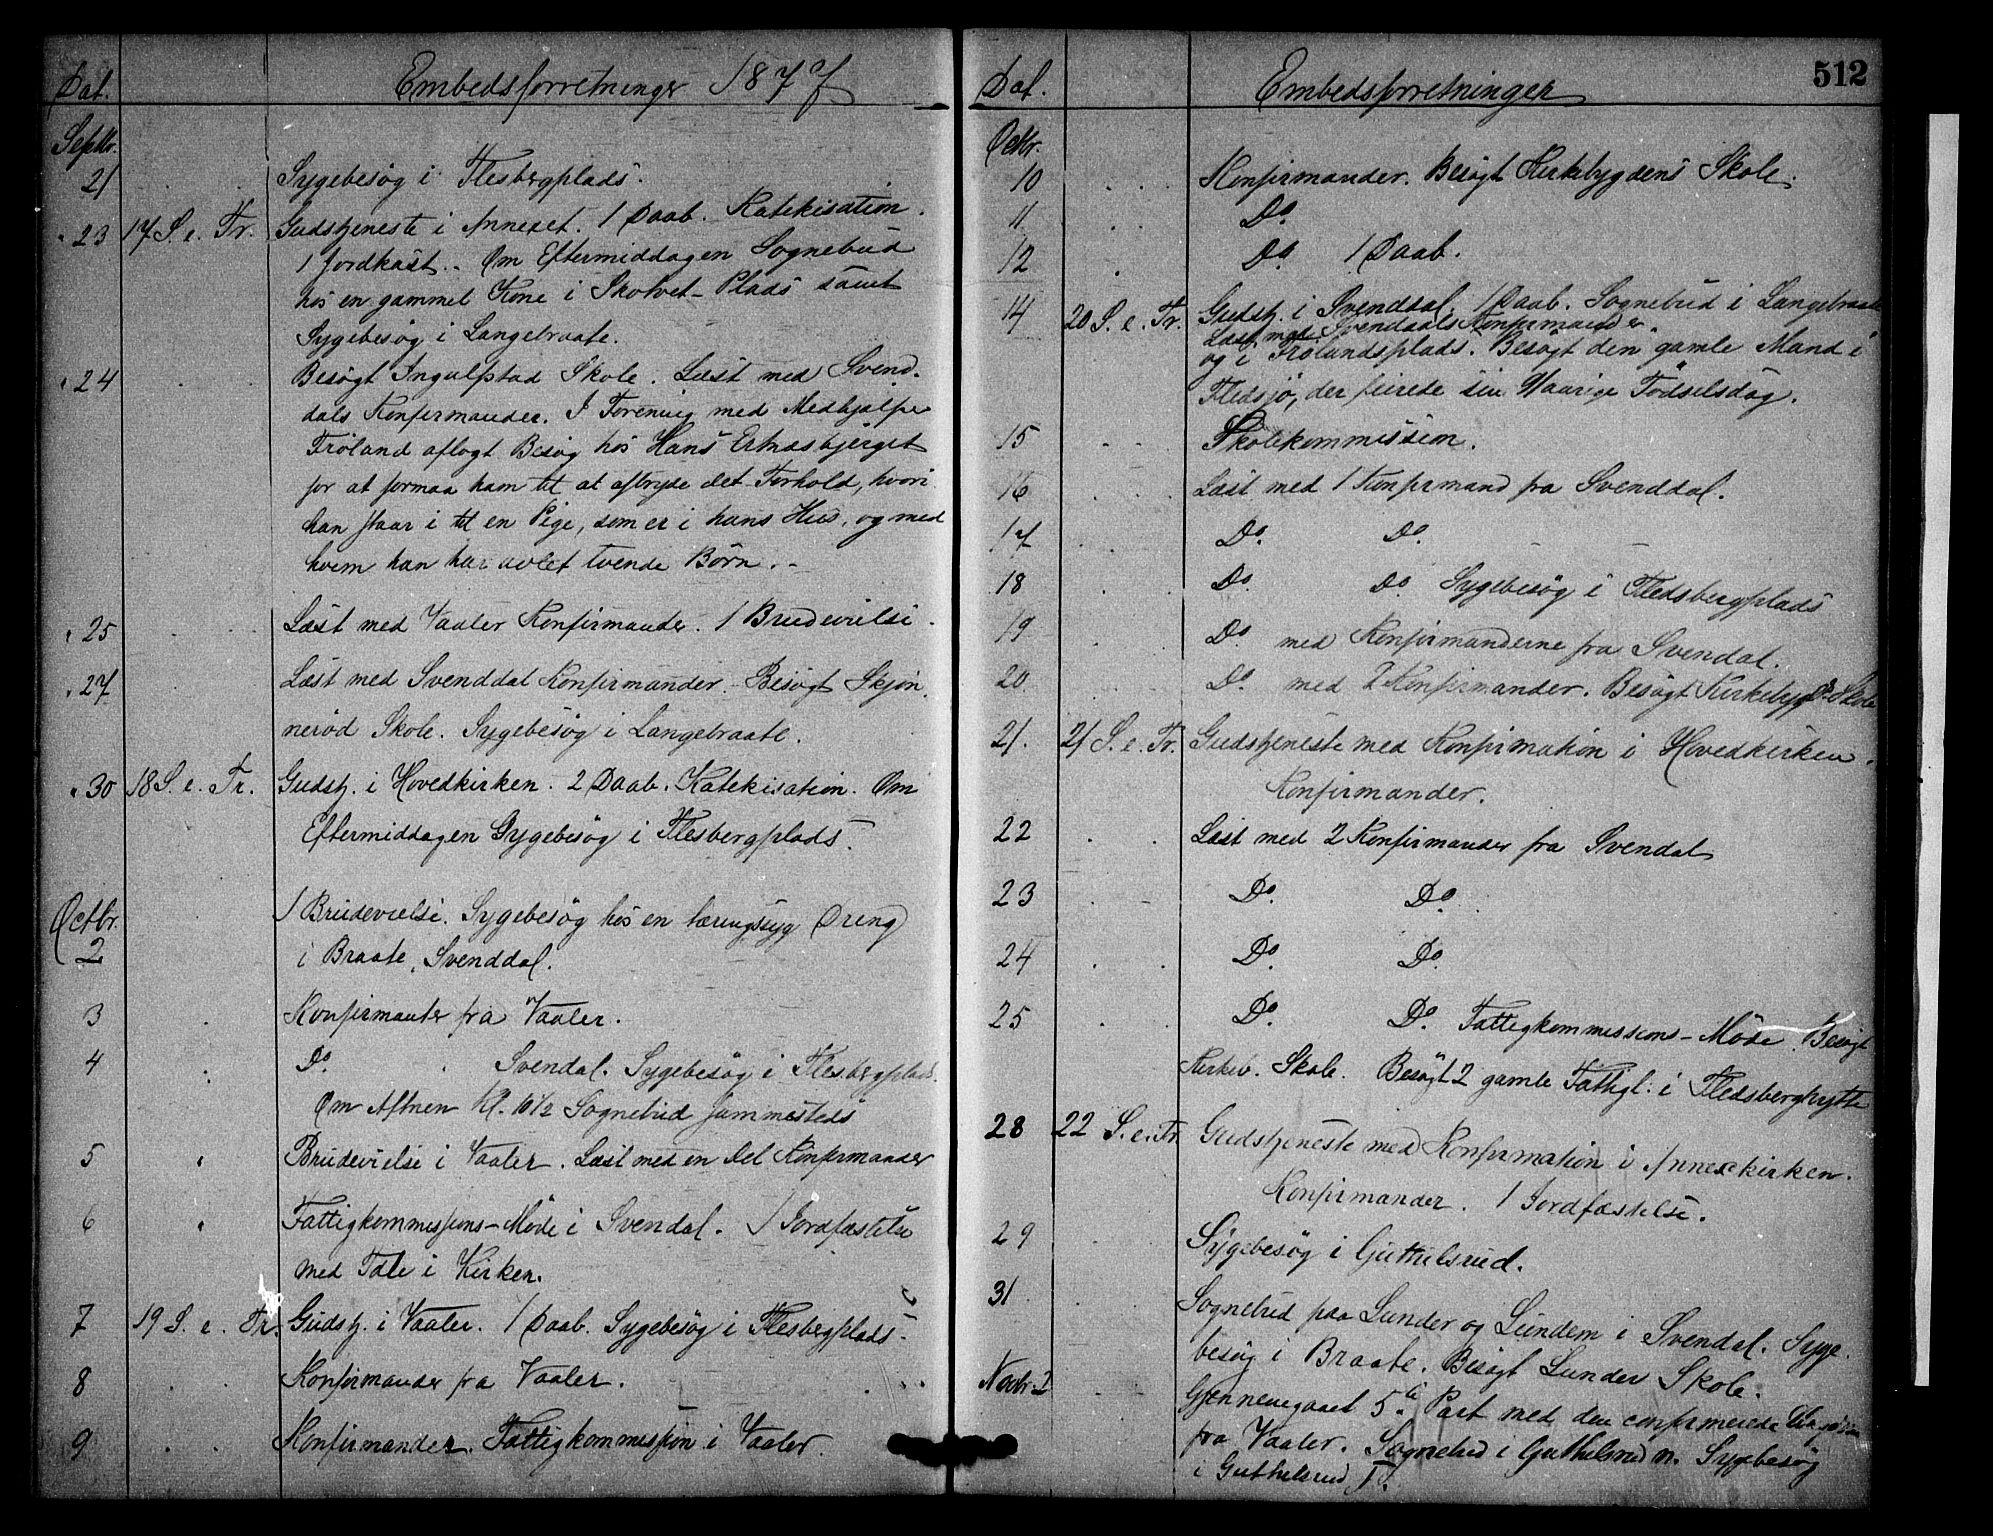 Dat.
Embedsforretninger 1877
Septbr.
21 Sygebesøg i Flesbergplads.
23 17 S. e. Tr. Gudstjeneste i Annexet. 1 Daab. Katekisation.
1 Jordkast. Om Eftermiddagen Sognebud
hos en gammel Kone i Skotvet-Plads samt
Sygebesøg i Langebraate.
24 Besøgt Ingulfstad Skole. Læst med Svend-
dals Konfirmander. I Forening med Medhjælper
Fröland aflagt Besøg hos Hans
for at formaa ham til at afbryde det Forhold, hvori
han staar i til en Pige, som er i hans Hus, og med
hvem han har avlet tvende Börn.
25 Læst med Vaaler Konfirmander. 1 Brudevielse.
27 Læst med Svenddal Konfirmander. Besøgt Skjön-
neröd Skole. Sygebesøg i Langebraate.
30 18 S. e. Tr. Gudstj. i Hovedkirken. 2 Daab. Katekisation. Om
Eftermiddagen Sygebesøg i Flesbergplads.
Octbr.
2 1 Brudevielse. Sygebesøg hos en tæringssyg Dreng
i Braate, Svenddal.
3 Konfirmanter fra Vaaler.
4 Do. Svendal. Sygebesøg i Flesbergplads.
Om Aftnen Kl. 10 1/2 Sognebud sammesteds
5 Brudevielse i Vaaler. Læst med en Del Konfirmander
6 Fattigkommissions-Möde i Svendal. 1 Jordfæstelse
med Tale i Kirken.
7 19 S. e. Tr. Gudstj. i Vaaler. 1 Daab. Sygebesøg i Flesbergplads.
8 Konfirmander fra Vaaler.
9 Konfirmander. Fattigkommission i Vaaler.
Dat.
Embedsforretninger
512
Octbr.
10 Konfirmander. Besøgt Kirkebygdens Skole.
11 Do
12 Do 1 Daab.
14 20 S. e. Tr. Gudstj. i Svenddal. 1 Daab. Sognebud i Langebraate
Læst med Svendals Konfirmander
og i Frölandsplads. Besøgt den gamle Mand i
Fledsjö, der feirede sin Födselsdag.
15 Skolekommission.
16 Læst med 1 Konfirmand fra Svenddal.
17 Do. Do.
18 Do Do. Sygebesøg i Fledsbergplads
19 Do. med Konfirmanderne fra Svendal.
20 Do. med 2 Konfirmander. Besøgt Kirkebygds Skole
21. 21 S. e. Tr. Gudstjeneste med Konfirmation i Hovedkirken.
Konfirmander.
22 Læst med 2 Konfirmander fra Svendal
23 Do. Do.
24 Do. Do.
25 Do. Do. Fattigkommissions-Möde. Besøgt
Kirkeb. Skole. Besøgt 2 gamle Fattigl. i Fledsberghytte
28 22 S. e. Tr. Gudstjeneste med Konfirmation i Annexkirken.
Konfirmander. 1 Jordfæstelse.
29 Sygebesøg i Guthulsrud.
31 Sognebud paa Lunder og Lundem i Svendal. Syge-
besøg i Braate. Besøgt Lunder Skole.
Novbr. 1 Gjennemgaaet 5te Part med den confirmerede Ungdom
fra Vaaler. Sognebud i Guthulsrud n. Sygebesøg
i Guthulsrud